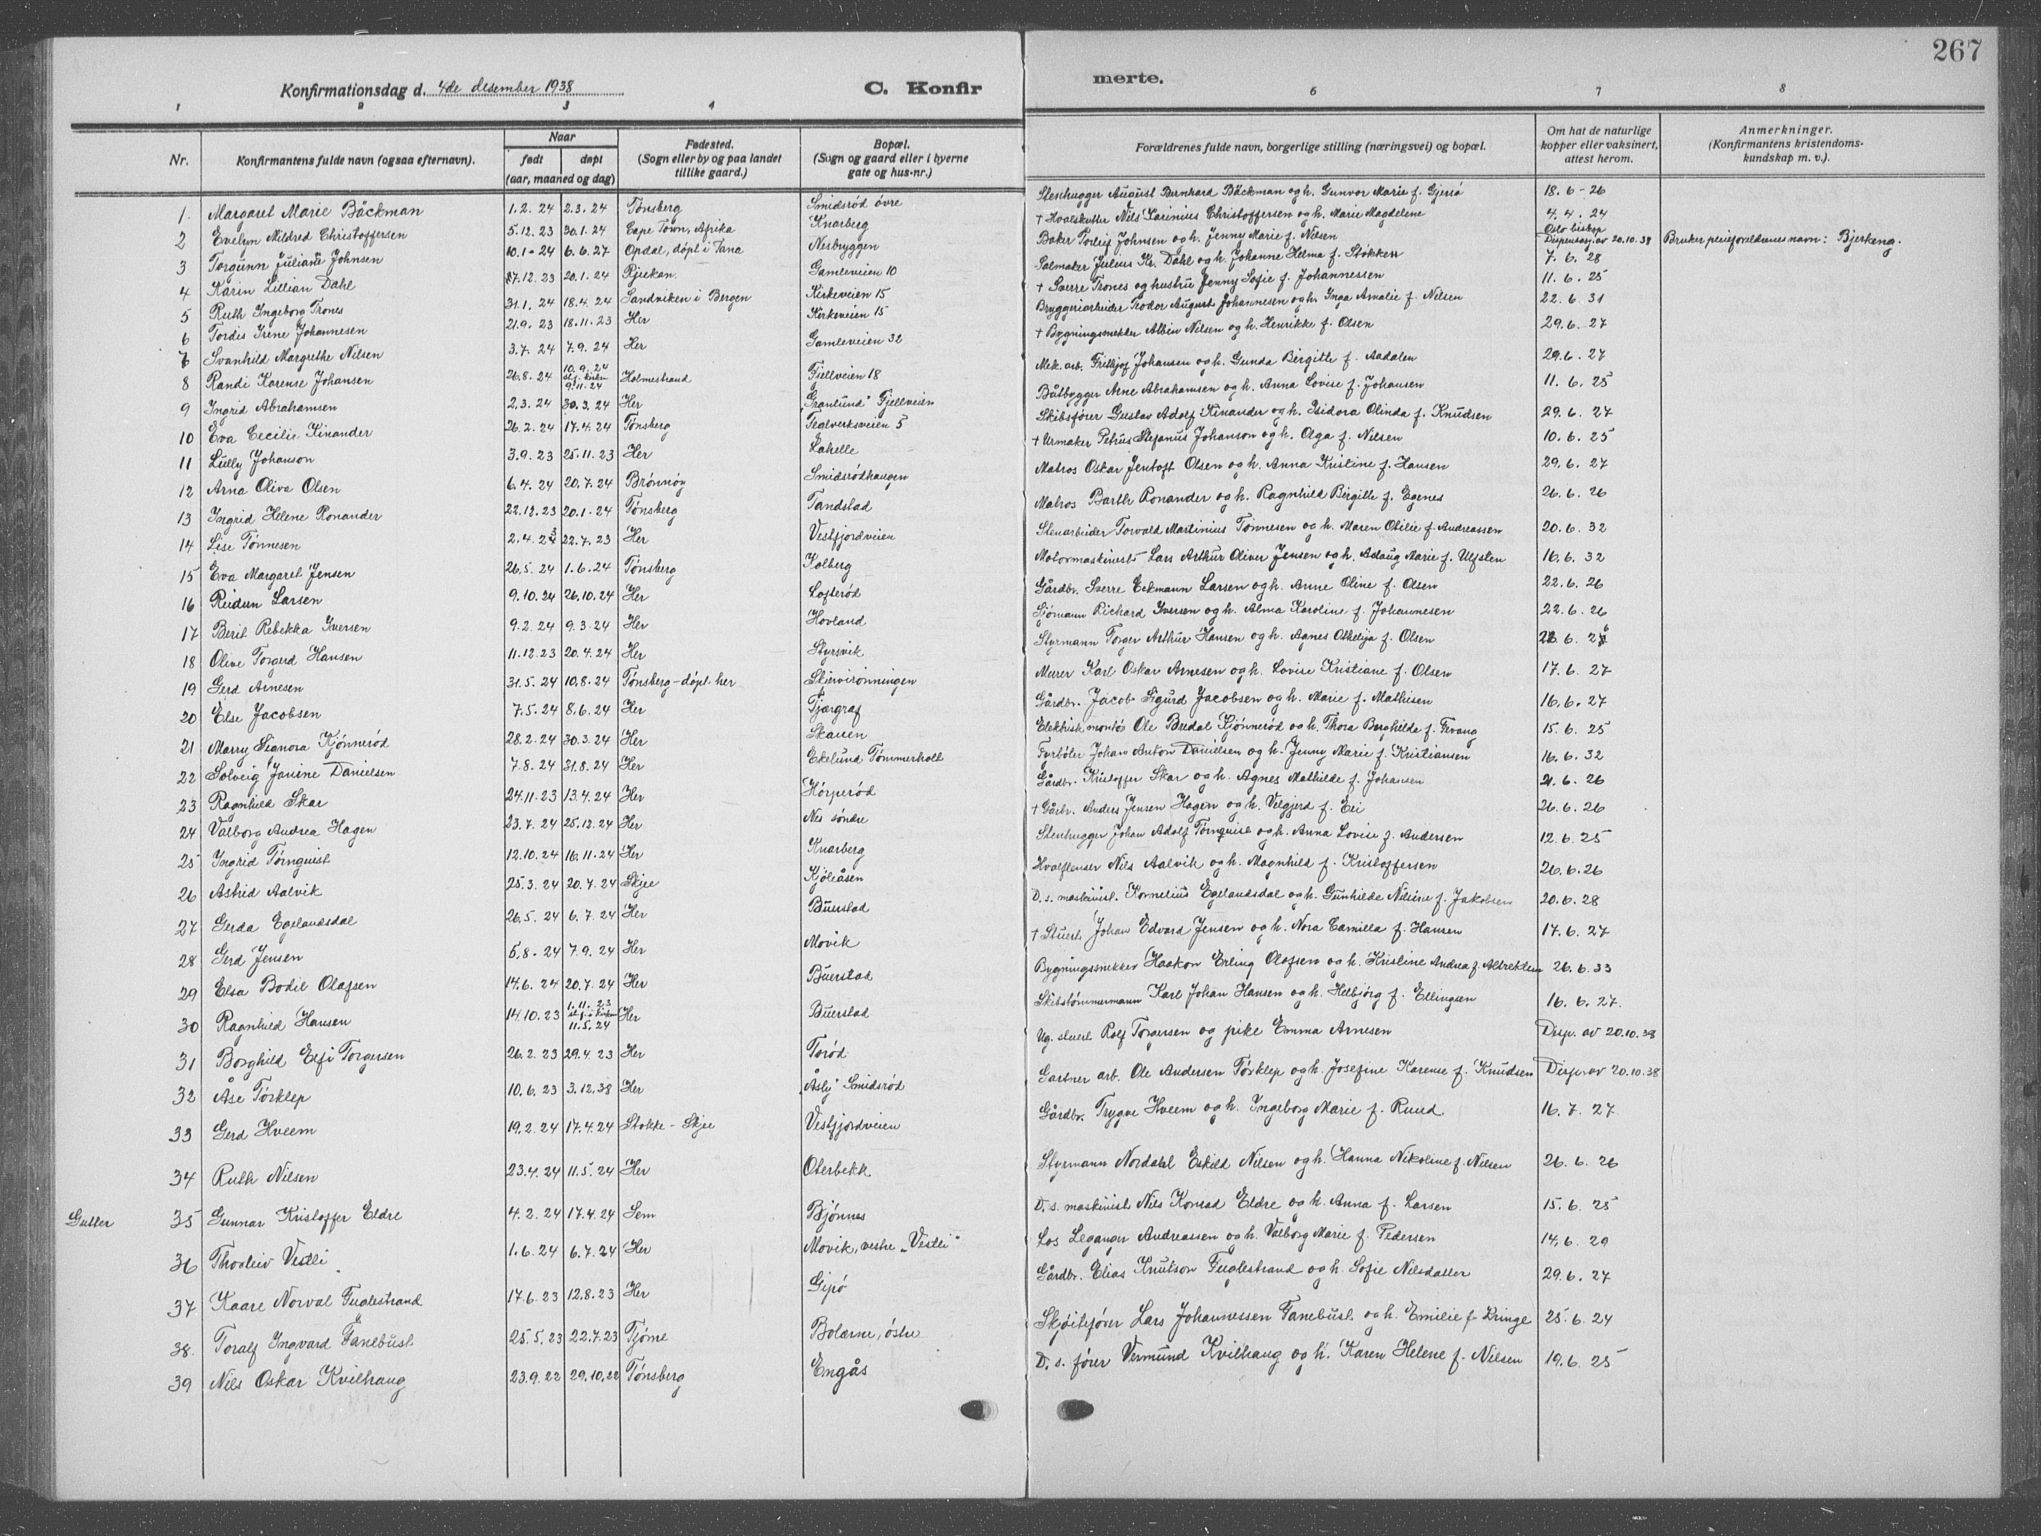 267
Konfirmationsdag d. 4de desember 1938 C. Konfirmerte.
1 2 3 4 6 7 8
Nr. Konfirmantens fulde navn (ogsaa efternavn). Naar født døpt (aar, maaned og dag) Fødested. (Sogn eller by og paa landet tillike gaard.) Bopæl. (Sogn og gaard eller i byerne gate og hus-nr.) Forældrenes fulde navn, borgerlige stilling (næringsvei) og bopæl. Om hat de naturlige kopper eller vaksinert, attest herom. Anmerkninger. (Konfirmantens kristendomskundskap m. v.).
1. Margaret Marie Bäckman 1.2.24 2.3.24 Tønsberg Smidsrød øvre Stenhugger August Bernhard Bäckman og h. Gunvor Marie f. Gjersø 18.6-26
2 Evelyn Mildred Christoffersen 5.12.23 20.1.24 Cape Town, Afrika Knarberg + Hvalskytter Nils Karinius Christoffersen og h. Marie Magdelene 4.4.24
3 Torgunn Juliane Johnsen 10.1-24 6.6.27 Opdal, døpt i Tana Nesbryggen Baker Torleif Johnsen og h. Jenny Marie f. Nilsen Oslo biskop Dispensasj. av 20.10.38 Bruker pleieforeldrenes navn: Bjerkeng.
4 Karin Lillian Dahl 17.12.23 20.1.24 Rjukan Gamleveien 10 Salmaker Julius Kr. Dahl og h. Johanne Helma f. Støkken 7.6.28
5 Ruth Ingeborg Trones 31.1.24 18.4.24 Sandviken i Bergen Kirkeveien 15 + Sverre Trones og hustru Jenny Sofie f. Johannessen 11.6.25
6 Tordis Irene Johannesen 21.9.23 18.11.23 Her Kirkeveien 15 Bryggeriarbeider Teodor August Johannesen og h. Inga Amalie f. Nilsen 22.6.31
7 Svanhild Margrethe Nilsen 3.7.24 7.9.24 Her Gamleveien 32 + Bygningssnekker Albin Nilsen og h. Henrikke f. Olsen 29.6.27
8 Randi Karense Johansen 26.8.24 10.9.24 st. f. i kirken 9.11.24 Holmestrand Fjellveien 18 Mek. arb. Fritkjof Johansen og h. Gunda Birgitte f. Aadalen 29.6.27
9 Ingrid Abrahamsen 2.3.24 30.3.24 Her "Granlund" Fjellveien Båtbygger Arne Abrahamsen og h. Anna Lovise f. Johansen 11.6.25
10 Eva Cecilie Kinander 26.2.24 17.4.24 Tønsberg Teglverksveien 5 Skibsfører Gustav Adolf Kinander og h. Isidora Olinda f. Knudsen 29.6.27
11 Lully Johanson 3.9.23 25.11.23 Her Lahelle + Urmaker Petrus Stefanus Johanson og h. Olga f. Nilsen 10.6.25
12 Arna Oliva Olsen 6.4.24 20.7.24 Brønnøy Smidsrødhaugen Matros Oskar Jentoft Olsen og h. Anna Kristine f. Hansen 29.6.27
13 Ingrid Helene Ronander 22.12.23 20.1.24 Tønsberg Tandstad Matros Barth Ronander og h. Ragnhild Birgitte f. Egenes 26.6.26
14 Lise Tønnesen 2.4.23 22.7.23 Her Vestfjordveien Stenarbeider Torvald Martinius Tønnesen og h. Maren Otilie f. Andreassen 20.6.32
15 Eva Margaret Jensen 26.5.24 1.6.24 Tønsberg Kolberg Motormaskinist Lars Arthur Oliver Jensen og h. Aslaug Marie f. Ulfsten 16.6.32
16 Reidun Larsen 9.10.24 26.10.24 Her Lofterød Gårdbr. Sverre Eckmann Larsen og h. Anne Oline f. Olsen 22.6.26
17 Berit Rebekka Iversen 9.2.24 9.3.24 Her Hovland Sjømann Richard Iversen og h. Alma Karoline f. Johannesen 22.6.26
18 Olive Torgerd Hansen 11.12.23 20.4.24 Her Styrsvik Styrmann Torger Arthur Hansen og h. Agnes Otkelija f. Olsen
19 Gerd Arnesen 31.5.24 10.8.24 Tønsberg - døpt her Skiervirønningen Murer Karl Oskar Arnesen og h. Lovise Kristiane f. Olsen 17.6.27
20 Else Jacobsen 7.5.24 8.6.24 Her Fjærgraf Gårdbr. Jacob Sigurd Jacobsen og h. Marie f. Mathisen 16.6.27
21 Marry Signora Kjønnerød 28.2.24 30.3.24 Her Skauen Elektrisk montør Ole Bredal Kjønnerød og h. Thora Borghilde f. Fevang 15.6.25
22 Solveig Janine Danielsen 7.8.24 31.8.24 Her Ekelund Tømmerholt Fyrbøter Johan Anton Danielsen og h. Jenny Marie f. Kristiansen 16.6.32
23 Ragnhild Skar 24.11.23 13.4.24 Her Hørperød Gårdbr. Kristoffer Skar og h. Agnes Mathilde f. Johansen 21.6.26
24 Valborg Andrea Hagen 23.7.24 25.12.24 Her Nes søndre + Gårbr. Anders Jensen Hagen og h. Velgjerd f. Eri 26.6.26
25 Ingrid Tørnquist 12.10.24 16.11.24 Her Knarberg Stenhugger Johan Adolf Tørnquist og h. Anna Lovise f. Andersen 12.6.25
26 Astrid Aalvik 25.3.24 20.7.24 Skjee Kjøleåsen Hvalflenser Nils Aalvik og h. Magnhild f. Kristoffersen 26.6.26
27 Gerda Egelandsdal 26.5.24 6.7.24 Her Buerstad D.s. maskinist. Kornelius Egelandsdal og h. Gunhilde Nilsine f. Jakobsen 20.6.28
28 Gerd Jensen 5.8-24 7.9.24 Her Movik + Stuert Johan Edvard Jensen og h. Nora Camilla f. Hansen 17.6.27
29 Elsa Bodil Olafsen 14.6.24 20.7.24 Her Buerstad Bygningssnekker Haakon Erling Olafsen og h. Kristine Andrea f. 26.6.33
30 Ragnhild Hansen 14.10.23 1.11.23 st. f. i kirken 11.5.24 Her Buerstad Skibstømmermann Karl Johan Hansen og h. Helbjørg f. Ellingsen 16.6.27.
31 Borghild Elfi Torgersen 26.2.23 29.4.23 Her Torød Ug. stuert Rolf Torgersen og pike Emma Arnesen Disp. av 20.10.38
32 Åse Tørklep 10.6.23 3.12.38 Her "Åsly" Smidsrød Gartner arb. Ole Andersen Tørklep og h. Josefine Karense f. Knudsen Disp. av 20.10.38
33 Gerd Hveem 19.2.24 17.4.24 Stokke - Skjee Vestfjordveien Gårdbr. Trygve Hveem og h. Ingeborg Marie f. Ruud 16.7.27.
34 Ruth Nilsen 23.4.24 11.5.24 Her Oterbekk Styrmann Nordahl Eskild Nilsen og h. Hanna Nikoline f. Nilsen 26.6.26
Gutter 35 Gunnar Kristoffer Eldre 4.2.24 17.4.24 Sem Bjønnes D.s. maskinist Nils Konrad Eldre og h. Anna f. Larsen 15.6.25
36 Thorleiv Vestli 1.6.24 6.7.24 Her Movik, vestre "Vestli" Los Leganger Andreassen og h. Valborg Marie f. Pedersen 14.6.29
37 Kaare Norval Fuglestrand 17.6.23 12.8.23 Her Gipø Gårdbr. Elias Knutson Fuglestrand og h. Sofie Nilsdatter 29.6.27
38. Toralf Ingvard Fanebust 25.5.23 22.7.23 Tjøme Bolærne, østre Skøitefører Lars Johannessen Fanebust og h. Emilie f. Kringe 25.6.24
39 Nils Oskar Kvilhaug 23.9.22 29.10.22 Tønsberg Engås D.s. fører Vermund Kvilhaug og h. Karen Helene f. Nilsen 19.6.25